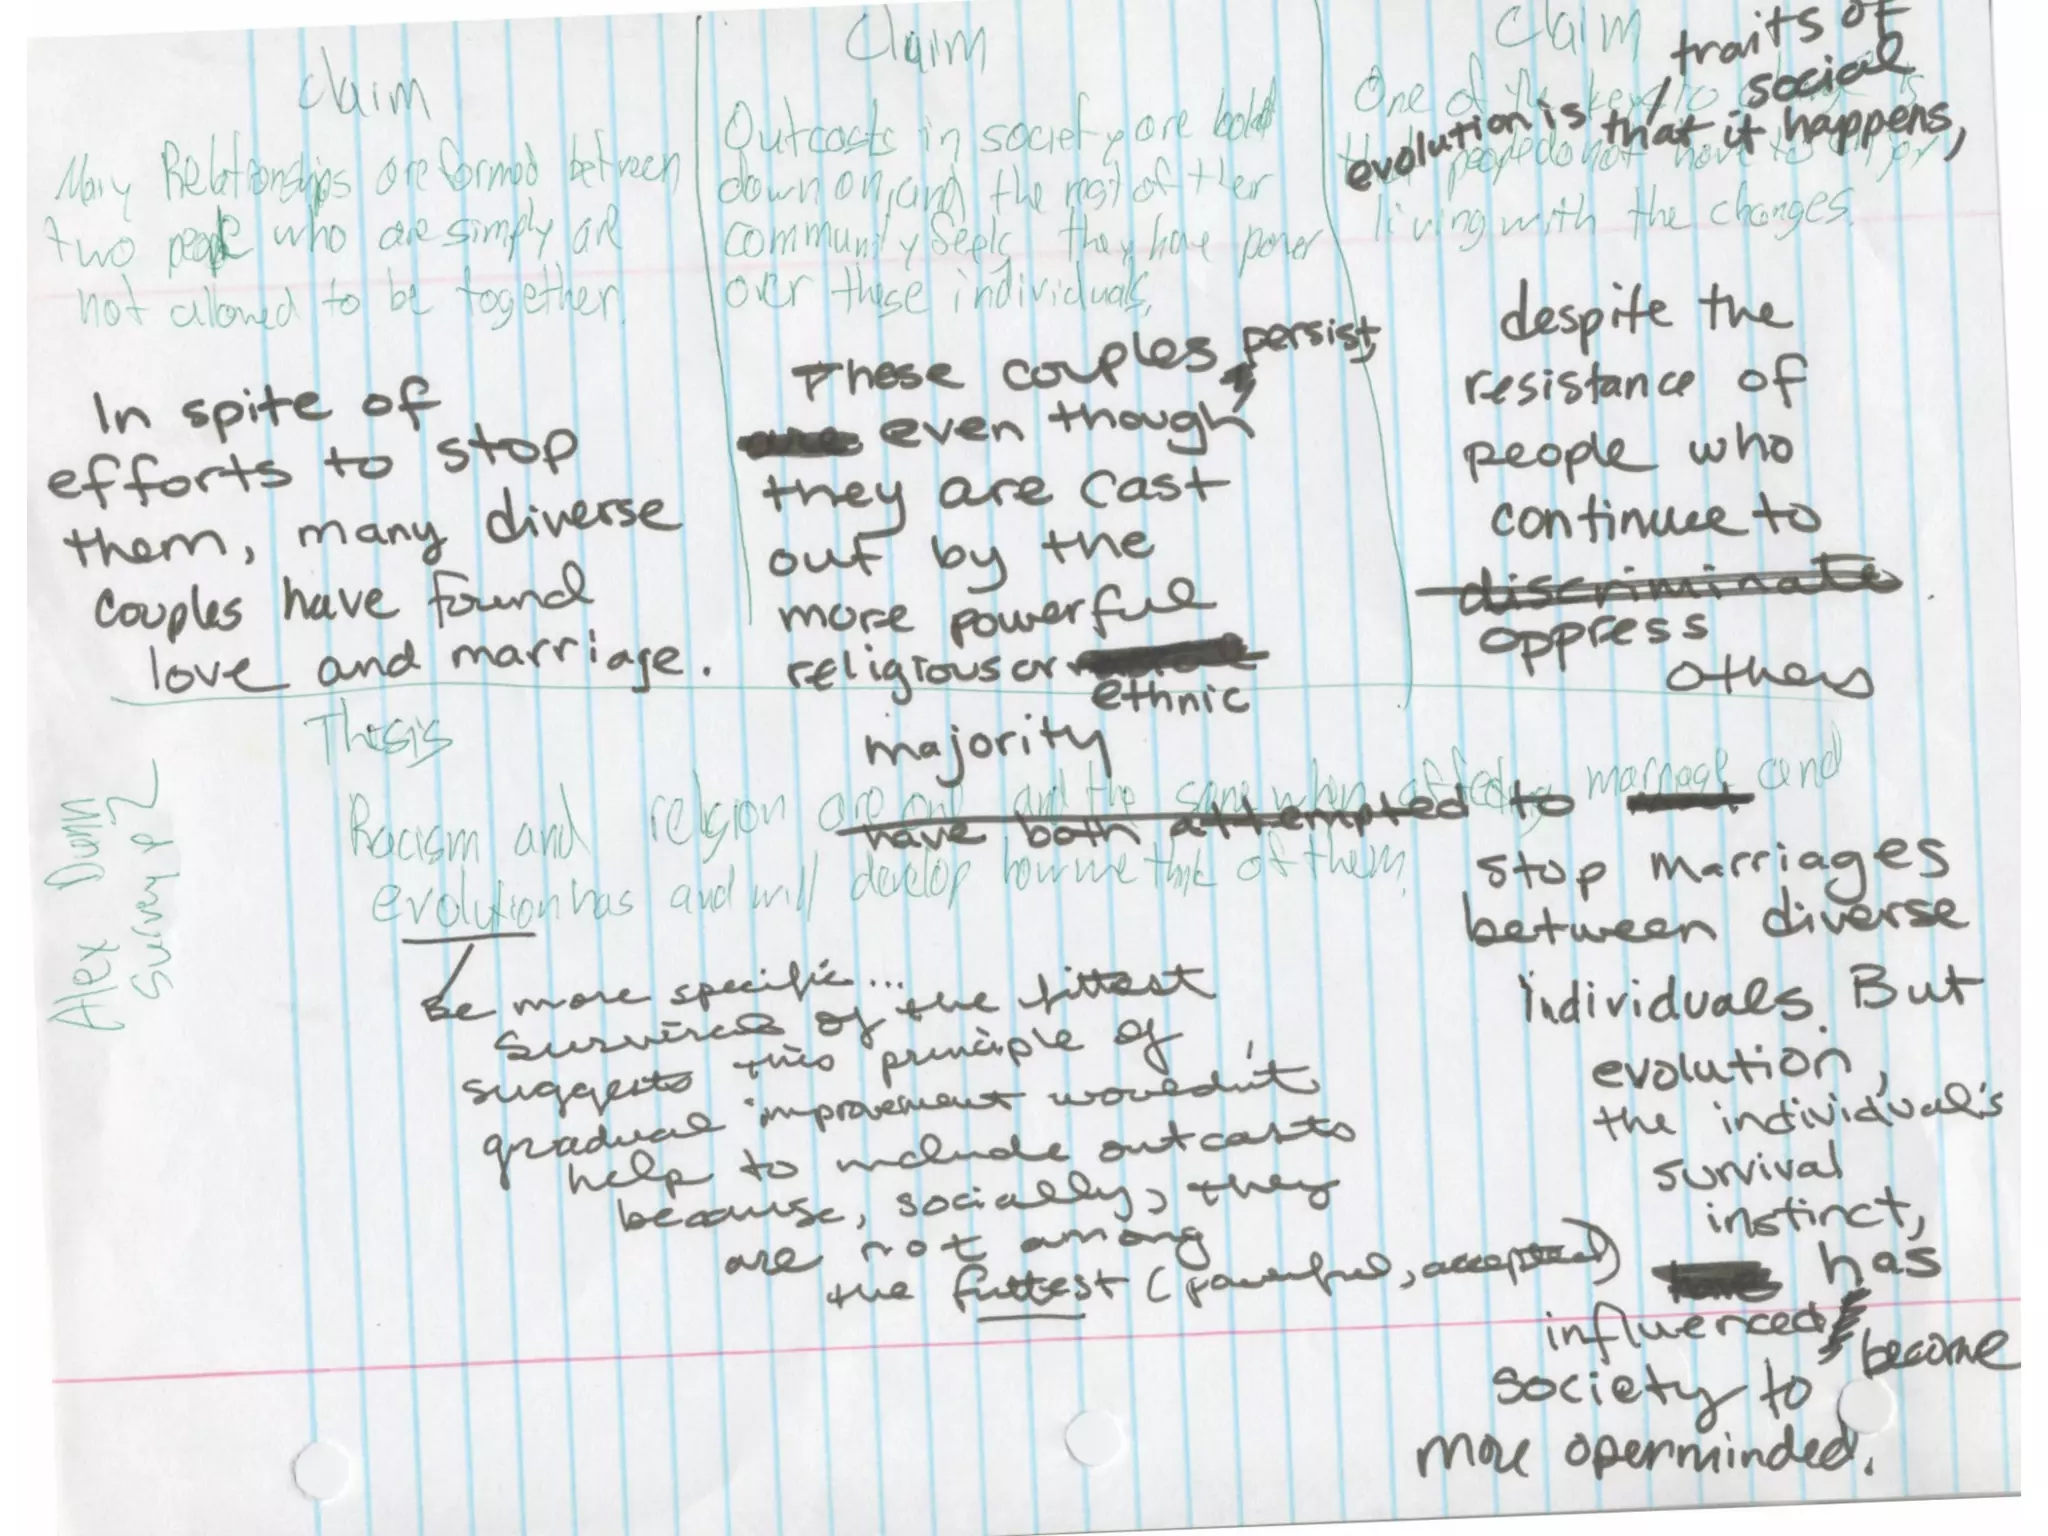 Claim
Many Relationships are formed between
two people who are simply are
not allowed to be together.
In spite of
efforts to stop
them, many diverse
couples have found
love and marriage.
Claim
Outcasts in society are
down on, and the rest of their
community seeks they have power
over these individuals.
These couples persist,
even though
they are cast
out by the
more powerful
religious or
ethnic
majority
Claim
One of the keys to
traits of
social
evolution is that it happens,
that people do not have to enjoy
living with the changes.
despite the
resistance of
people who
continue to
discriminate
oppress
others
Thesis
Racism and religion are one and the same when affecting marriage and
have both attempted to
evolution has and will develop how we think of them.
stop marriages
between diverse
individuals. But
evolution,
the individual's
survival
instinct,
has
influenced
become
society to
more openminded.
Be more specific...
Survival of the fittest
suggests this principle of
gradual improvement wouldn't
help to include outcasts
because, socially, they
are not among
the fittest (powerful, accepted)
Alex Dunn
Survey p2